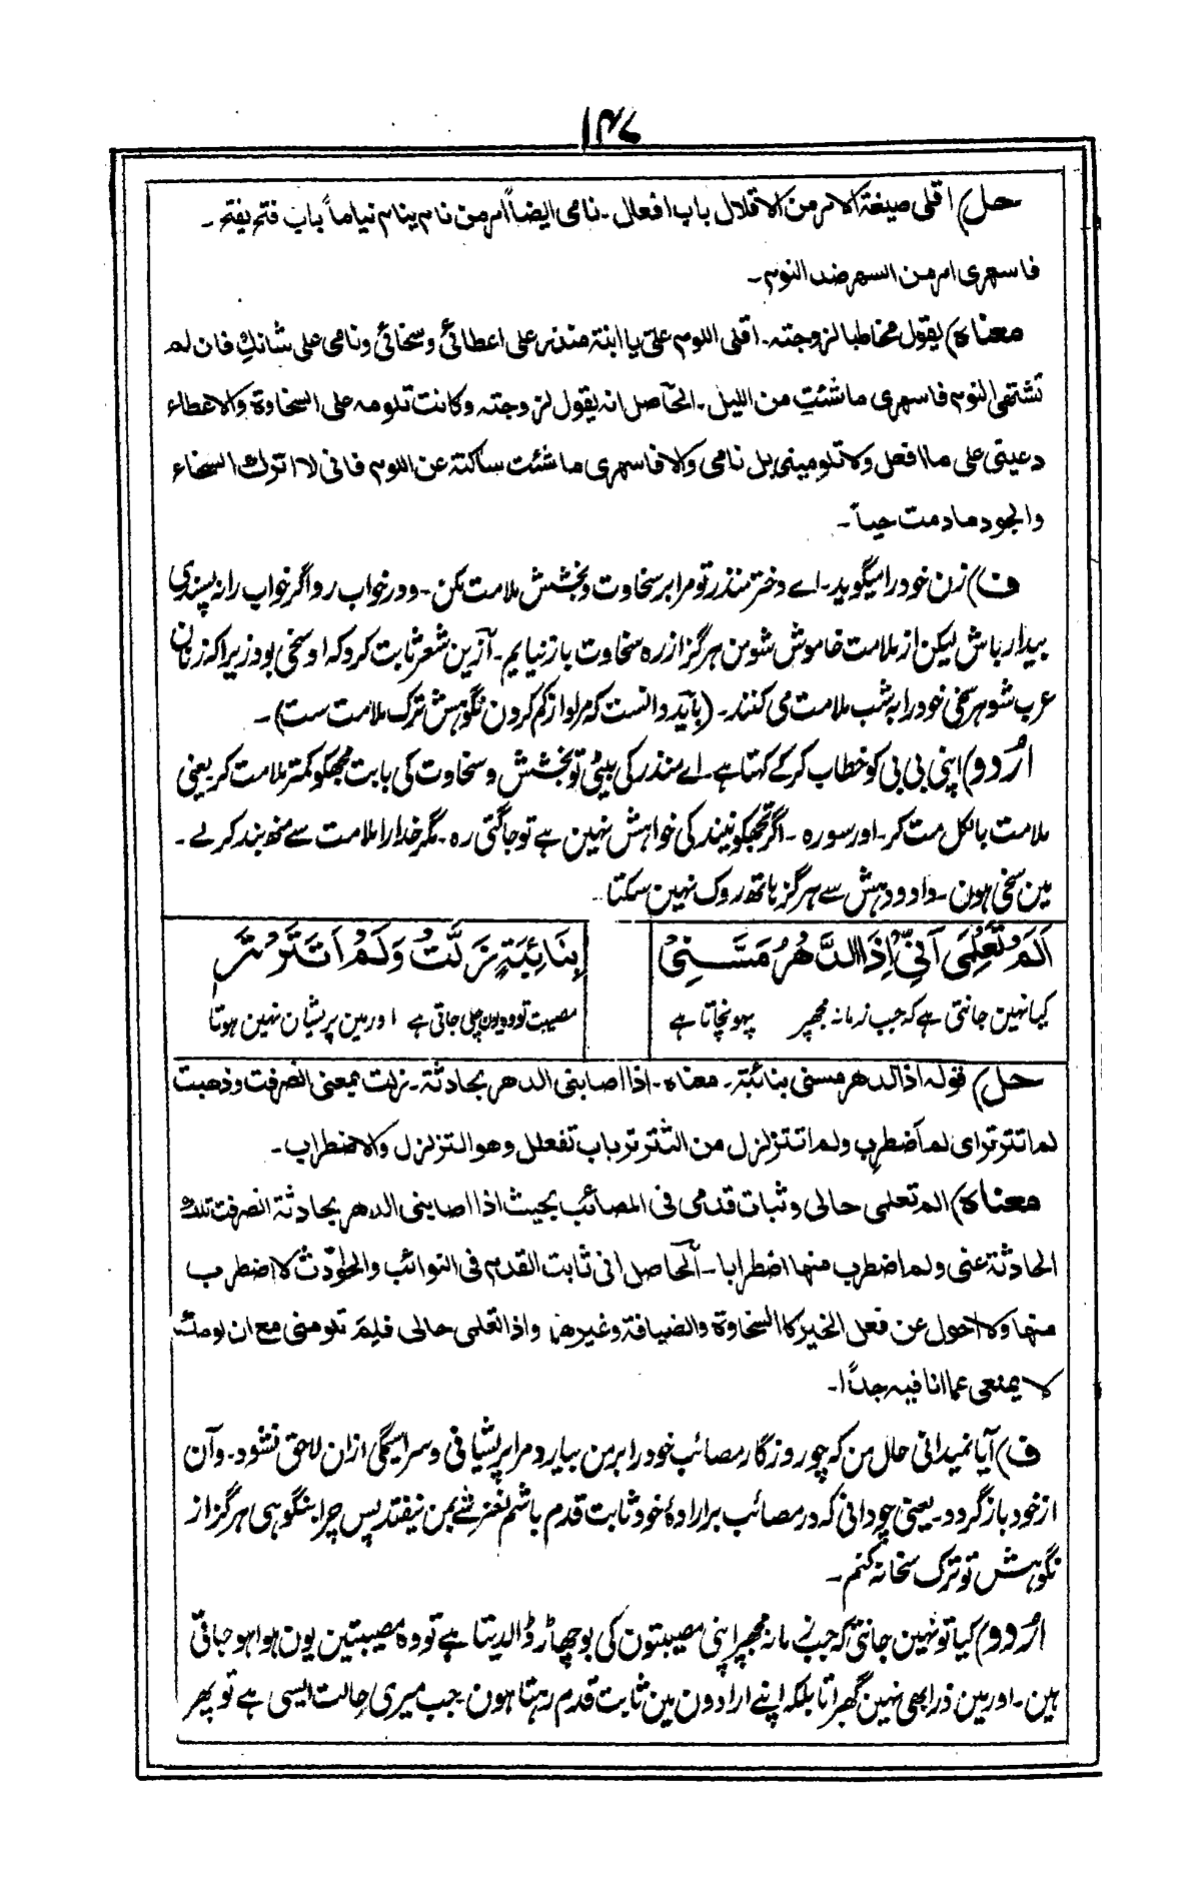 ۱۴۷
حل) اقلی صیغة الامر من الاقلال باب افعال۔ نامی ایضاً امر من نام ینام نیاماً باب فتح یفتح۔
فاسهری امر من السهر ضد النوم۔
معناه) یقول مخاطبا لزوجته۔ اقلی اللوم علیّ یا ابنة منذر علی اعطائی وسخائی ونامی علی شانك فان لم
تشتهی النوم فاسهری ما شئتِ من اللیل۔ الحآصل انه یقول لزوجته وکانت تلومه علی السخاوة والاعطاء
دعینی علی ما افعل ولا تلومینی بل نامی والا فاسهری ما شئت ساکتة عن اللوم فانی لا اترك السخاء
والجود ما دمت حیاً۔
ف) زن خود را میگوید۔ اے دختر منذر تو مرا بر سخاوت و بخشش ملامت مکن۔ و در خواب رو اگر خواب را نہ پسندی
بیدار باش لیکن از ملامت خاموش شو من ہرگز از رہ سخاوت باز نیایم۔ آزین شعر ثابت کرد کہ او سخی بود زیرا کہ زنان
عرب شوہر سخی خود را بہ شب ملامت می کنند۔ (باید دانست کہ مراد از کم کردن نگوہش ترک ملامت ست)۔
اُردو) اپنی بی بی کو خطاب کرکے کہتا ہے۔ اے منذر کی بیٹی تو بخشش و سخاوت کی بابت مجھکو کمتر ملامت کر یعنی
ملامت بالکل مت کر۔ اور سو رہ۔ اگر تجھکو نیند کی خواہش نہین ہے تو جاگتی رہ۔ مگر خدارا ملامت سے منھ بند کرلے۔
مین سخی ہون۔ داد و دہش سے ہرگز ہاتھ روک نہین سکتا۔
اَلَمْ تَعْلَمِی اَنِّیْ اِذَا الدَّهْرُ مَسَّنِیْ بِنَائِبَةٍ نَزَلَّتْ وَلَمْ اَتَتَرْتَرِ
کیا نہین جانتی ہے کہ جب زمانہ مجھپر پہونچاتا ہے مصیبت تو وہ یون چلی جاتی ہے اور مین پریشان نہین ہوتا
حل) قوله اذا الدهر مسنی بنائبة۔ معناه۔ اذا اصابنی الدهر بحادثة۔ زلت بمعنی انصرفت وذهبت
لم اتترتر ای لم اضطرب ولم اتزلزل من التترتر باب تفعلل وهو التزلزل والاضطراب۔
معناه) الم تعلمی حالی وثبات قدمی فی المصائب بحیث اذا اصابنی الدهر بحادثة انصرفت تلك
الحادثة عنی ولم اضطرب منها اضطرابا۔ الحآصل انی ثابت القدم فی النوائب والحوادث لا اضطرب
منها ولا احول عن فعل الخیر کالسخاوة والضیافة وغیرها واذا تعلمی حالی فلِمَ تلومنی مع ان لومك
لا یمنعنی عما انا فیه جدًّا۔
ف) آیا نمیدانی حال من کہ چو روزگار مصائب خود را بر من بیارد مرا پریشانی و سراسیمگی ازان لاحق نشود۔ و آن
از خود باز گردد۔ یعنی چو دانی کہ در مصائب بر ارادۂ خود ثابت قدم باشم لغزشے بمن نیفتد پس چرا بنگوہی ہرگز از
نگوہش تو ترک سخا نہ کنم۔
اُردو) کیا تو نہین جانتی کہ جب زمانہ مجھپر اپنی مصیبتون کی بوچھاڑ ڈالدیتا ہے تو وہ مصیبتین یون ہوا ہو جاتی
ہین۔ اور مین ذرا بھی نہین گھبراتا بلکہ اپنے ارادون مین ثابت قدم رہتا ہون۔ جب میری حالت ایسی ہے تو پھر